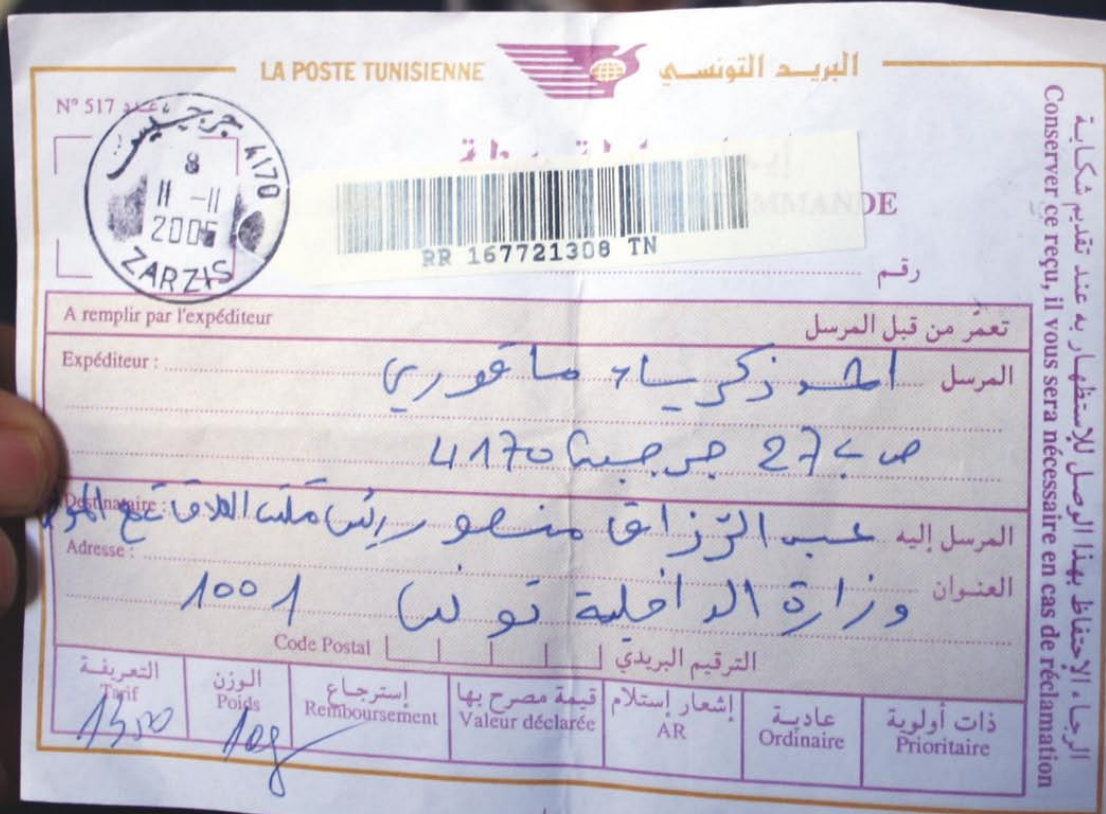 LA POSTE TUNISIENNE البريد التونسي
N° 517 عدد
جرجيس 4170
8
11 -11
2005
ZARZIS
MMANDE
RR 167721308 TN
رقم
A remplir par l'expéditeur تعمّر من قبل المرسل
Expéditeur : المرسل احمد زكرياء ماقوري
ص ب 27 جرجيس 4170
Destinataire : المرسل إليه عبد الرّزاق منصور رئيس مكتب العلاقات مع
Adresse : العنوان وزارة الداخلية تونس 1001
Code Postal الترقيم البريدي
التعريفة الوزن إسترجاع قيمة مصرح بها إشعار إستلام عادية ذات أولوية
Tarif Poids Remboursement Valeur déclarée AR Ordinaire Prioritaire
1300 10g
الرجاء الإحتفاظ بهذا الوصل للإستظهار به عند تقديم شكاية
Conserver ce reçu, il vous sera nécessaire en cas de réclamation